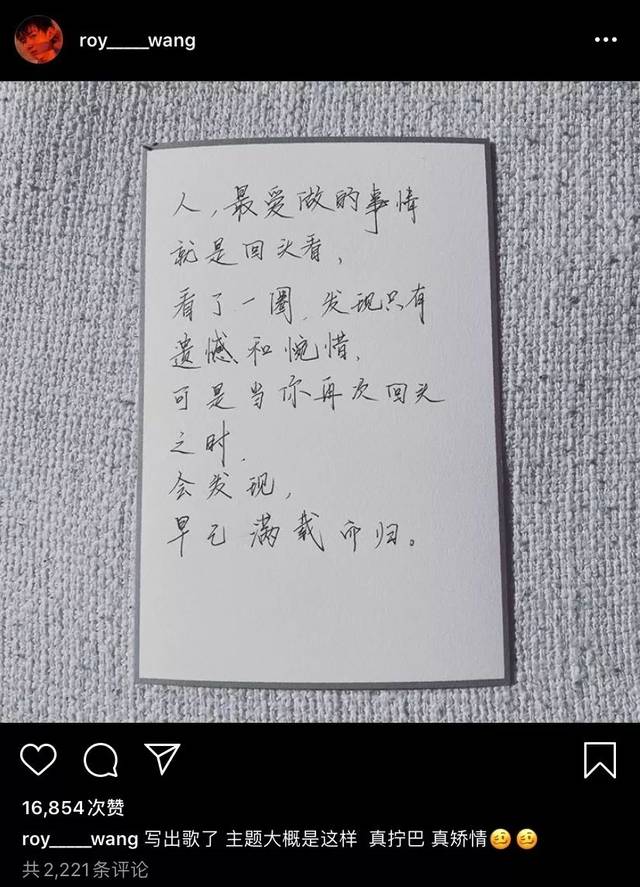 roy_____wang
人,最爱做的事情
就是回头看,
看了一圈,发现只有
遗憾和惋惜,
可是当你再次回头
之时,
会发现,
早已满载而归。
16,854次赞
roy_____wang 写出歌了 主题大概是这样 真拧巴 真矫情🥴🥴
共2,221条评论